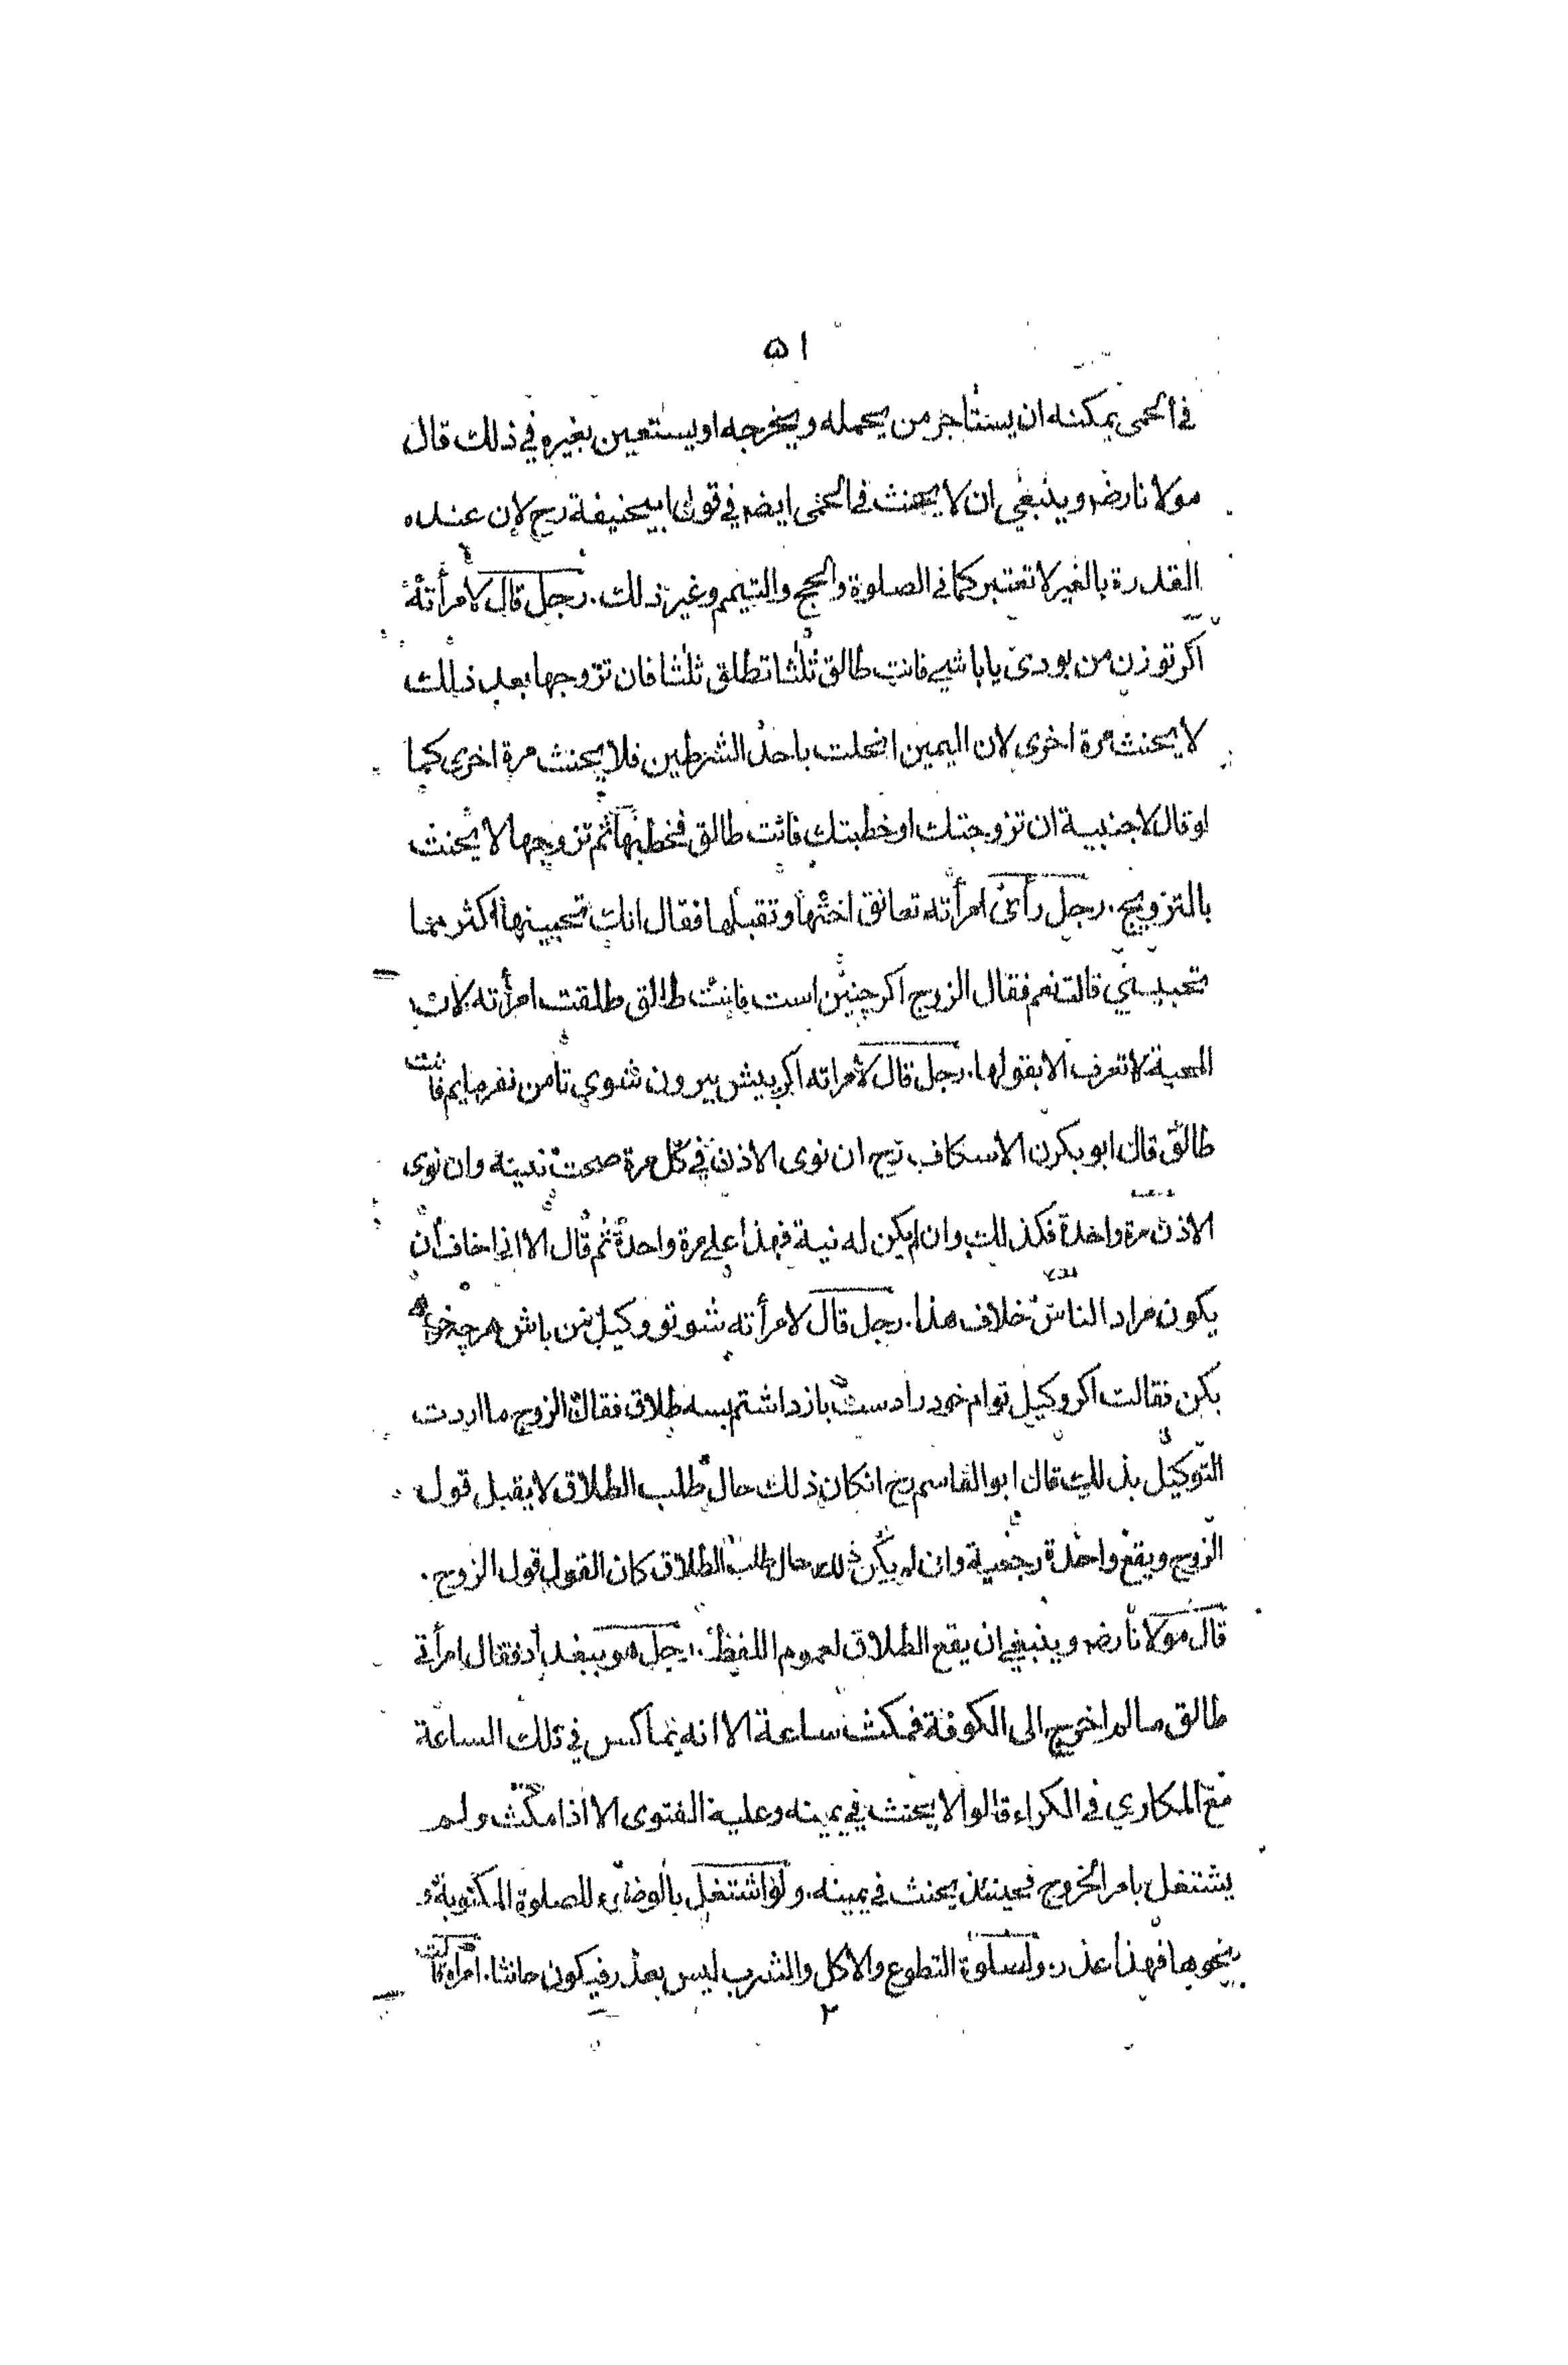 ٥١
في الحمى يمكنه ان يستاجر من يحمله ويخرجه او يستعين بغيره في ذلك قال
مولانا رضه وينبغي ان لا يحنث في الحمى ايضه في قول ابيحنيفة رح لان عنده
القدرة بالغير لا تعتبر كما في الصلوة والحج والتيمم وغير ذلك. رجل قال لامرأته
اكر تو زن من بودى يا باشي فانت طالق ثلثا تطلق ثلثا فان تزوجها بعد ذلك
لا يحنث مرة اخرى لان اليمين انحلت باحد الشرطين فلا يحنث مرة اخرى كما
لو قال لاجنبية ان تزوجتك او خطبتك فانت طالق فخطبها ثم تزوجها لا يحنث
بالتزويج. رجل رأى امرأته تعانق اختها وتقبلها فقال انك تحبينها اكثر مما
تحبيني قالت نعم فقال الزوج اكر چنين است فانت طالق طلقت امرأته لان
المحبة لا تعرف الا بقولها. رجل قال لامراته اكر پيش بيرون شوي تا من نفرمايم فانت
طالق قال ابو بكرن الاسكاف رح ان نوى الاذن في كل مرة صحت نيته وان نوى
الاذن مرة واحدة فكذلك وان لم يكن له نية فهذا على مرة واحدة ثم قال الا اني اخاف ان
يكون مراد الناس خلاف هذا. رجل قال لامرأته شو تو وكيل من باش هرچه خواهي
بكن فقالت اكر وكيل توام خود را دست باز داشتم بسه طلاق فقال الزوج ما اردت
التوكيل بذلك قال ابو القاسم رح انكان ذلك حال طلب الطلاق لا يقبل قول
الزوج ويقع واحدة رجعية وان لم يكن ذلك حال طلب الطلاق كان القول قول الزوج.
قال مولانا رضه وينبغي ان يقع الطلاق لعموم اللفظ. رجل هو ببغداد فقال امرأتي
طالق ما لم اخرج الى الكوفة فمكث ساعة الا انه يماكس في تلك الساعة
مع المكاري في الكراء قالوا لا يحنث في يمينه وعليه الفتوى الا اذا مكث ولم
يشتغل بامر الخروج فحينئذ يحنث في يمينه. ولو اشتغل بالوضوء للصلوة المكتوبة و
نحوها فهذا عذر ولصلوة التطوع والاكل والشرب ليس بعذر فيكون حانثا. امرأة قالت
٢